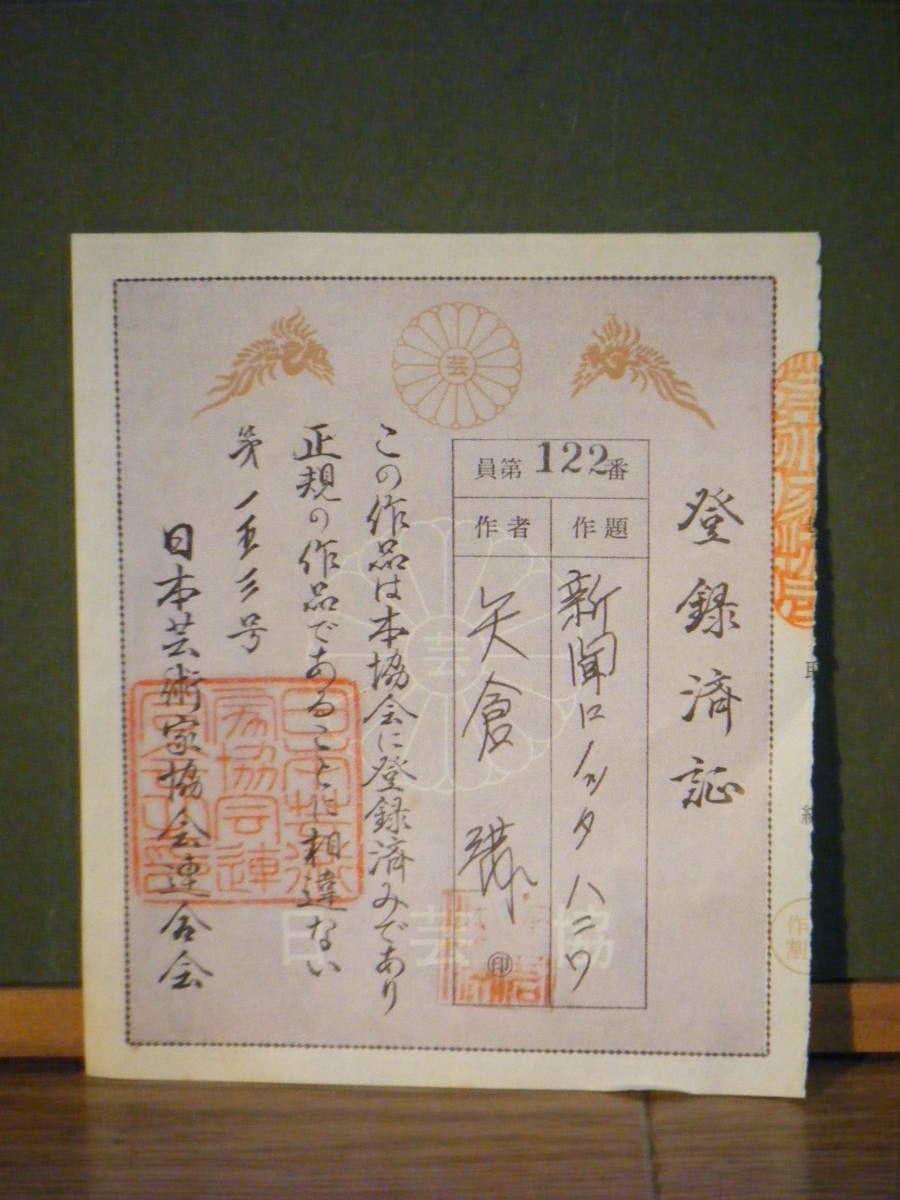 登録済証
員第122番
作題
新聞ロノッタハニワ
作者
矢倉
印
この作品は本協会に登録済みであり
正規の作品であることに相違ない
第一五三号
日本芸術家協会連合会
芸
芸
日芸協